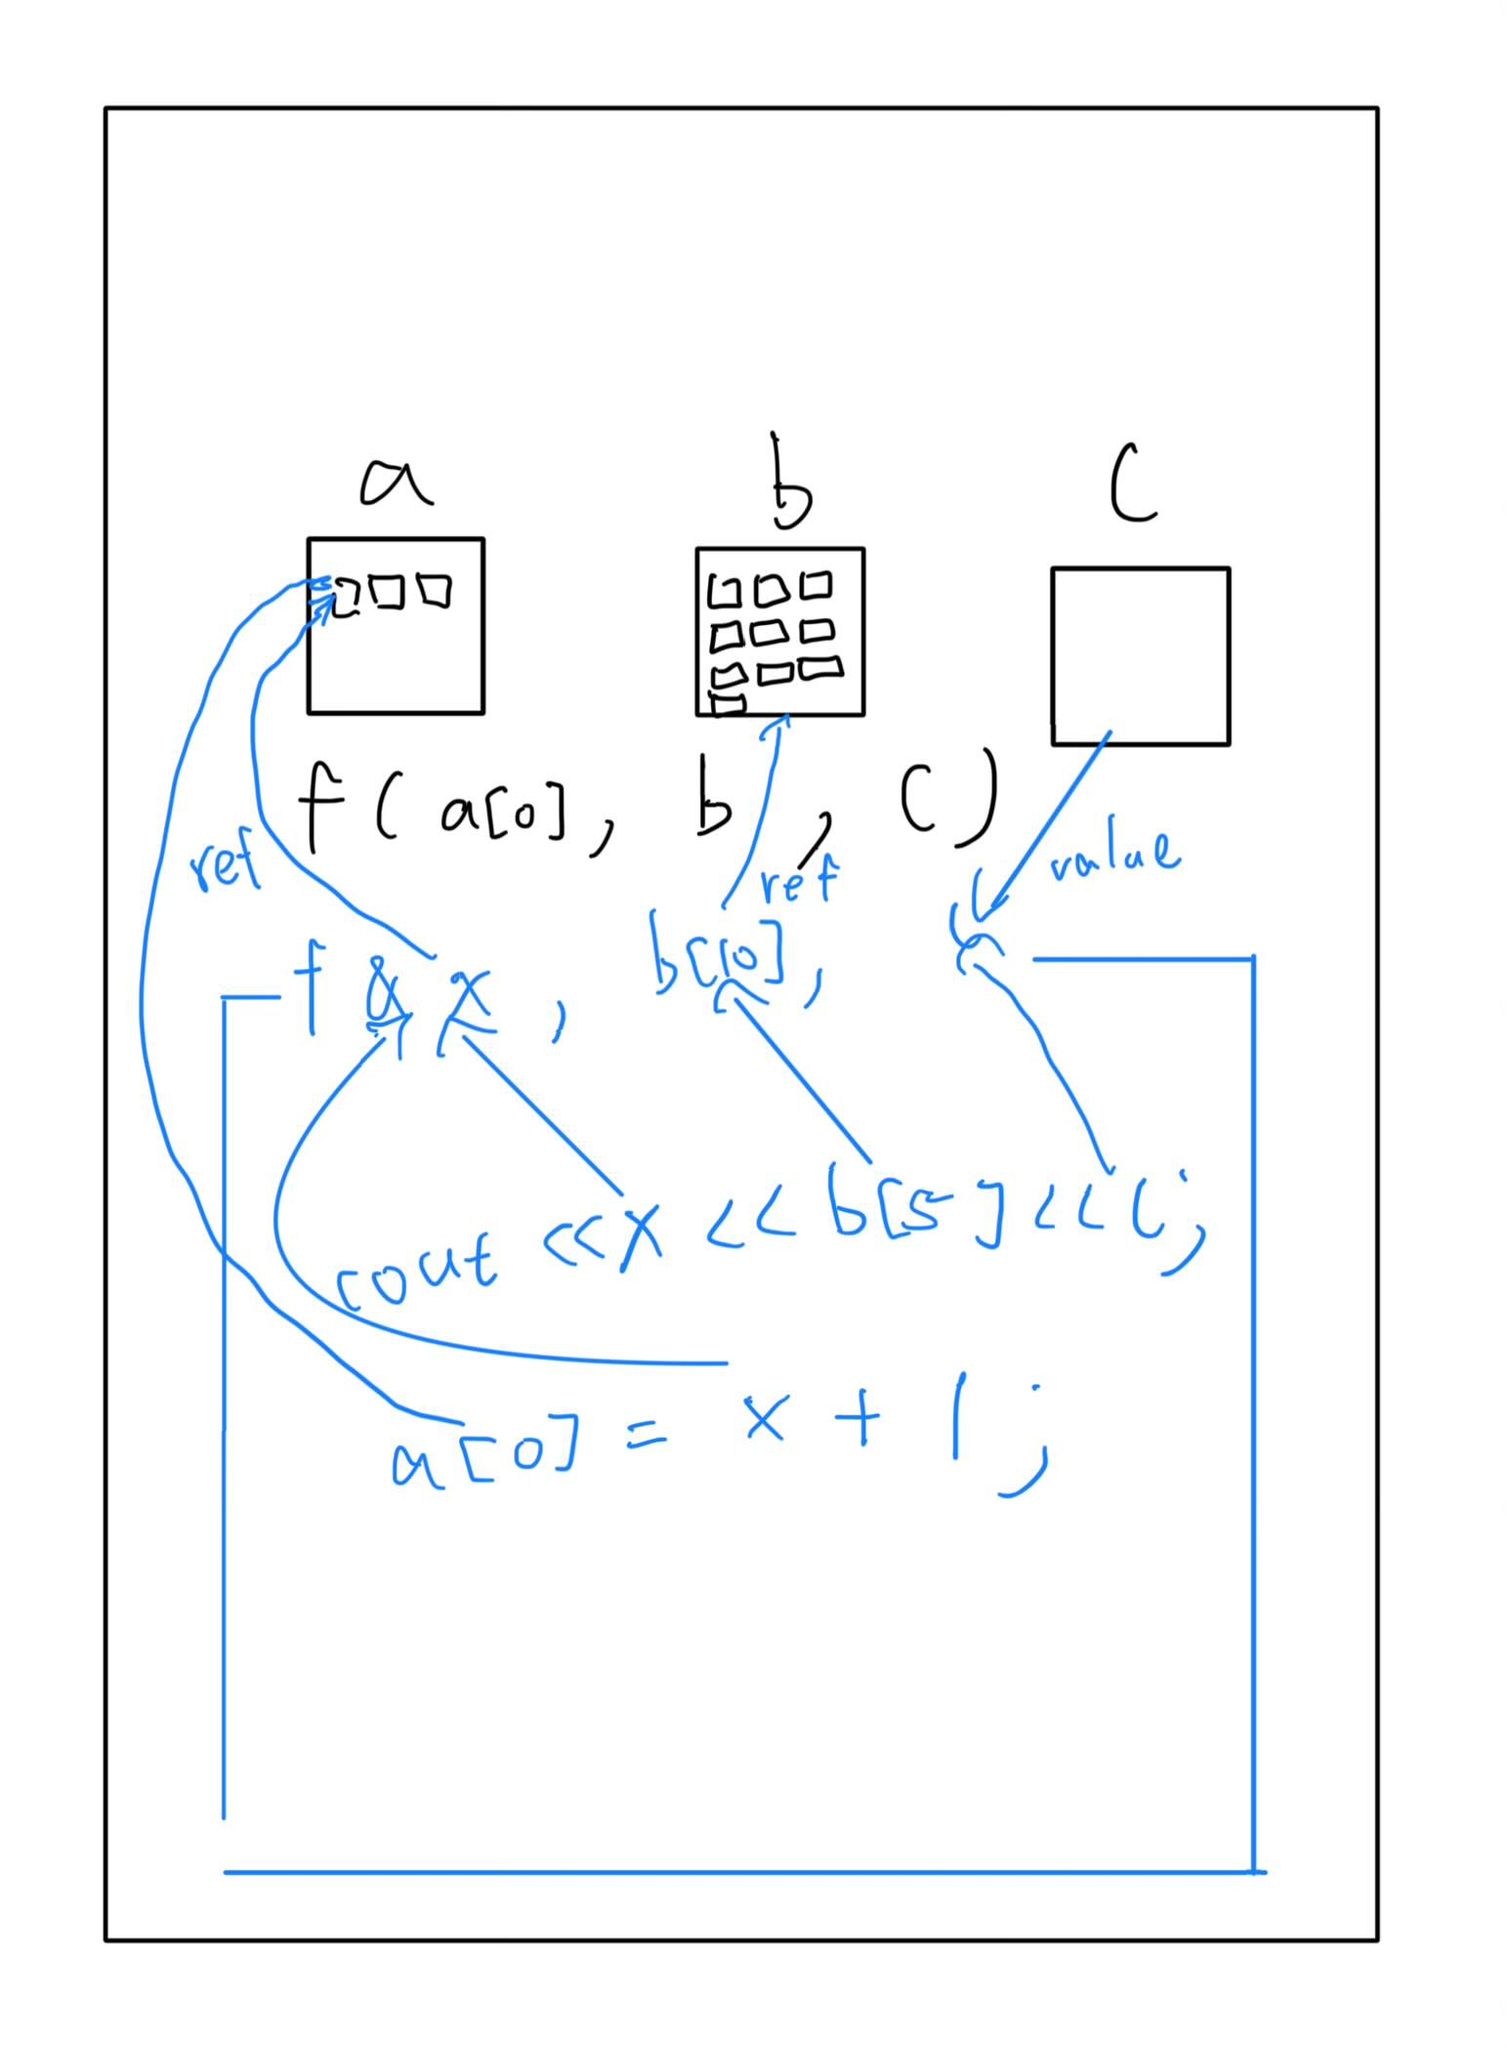 a b C
f( a[0], b , C)
ref ref value
f & x , b[10], C
cout <<x << b[5]<<C;
a[0] = x + 1;